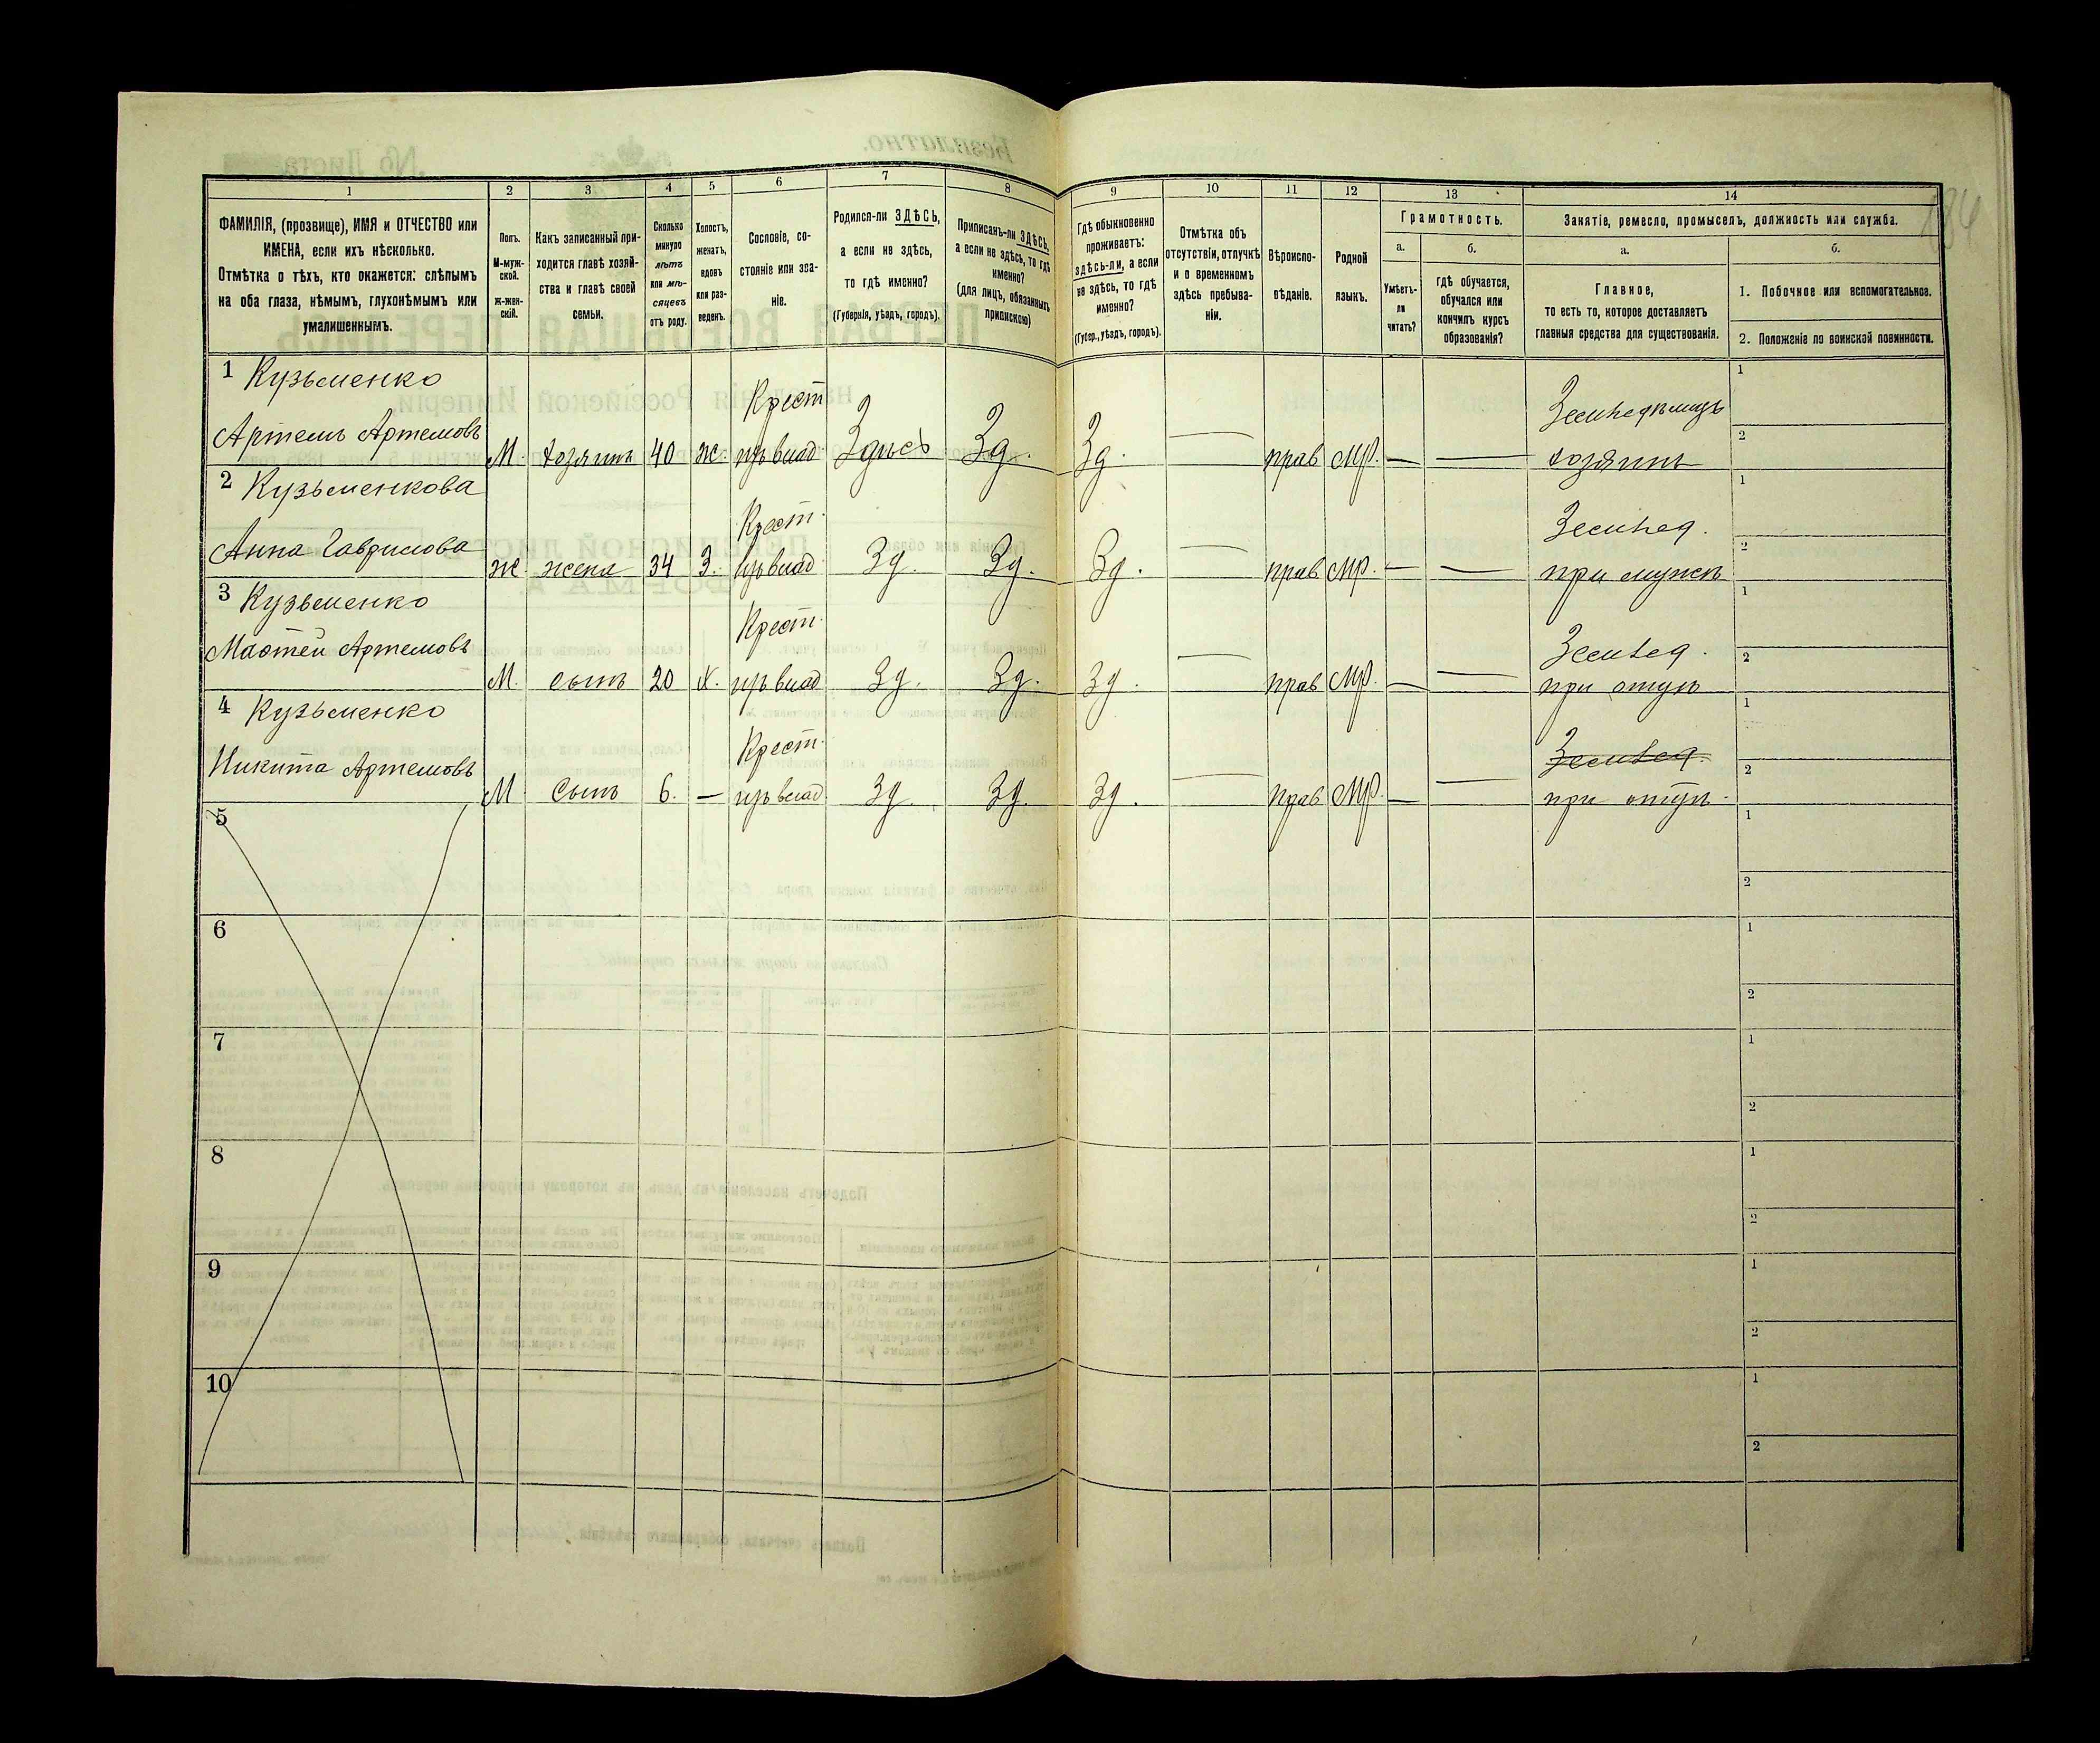 1 2 3 4 5 6 7 8 9 10 11 12 13 14
ФАМИЛІЯ, (прозвище), ИМЯ и ОТЧЕСТВО или
ИМЕНА, если ихъ нѣсколько.
Отмѣтка о тѣхъ, кто окажется: слѣпымъ
на оба глаза, нѣмымъ, глухонѣмымъ или
умалишеннымъ.
Полъ.
М-муж-
ской.
Ж-жен-
скій.
Какъ записанный при-
ходится главѣ хозяй-
ства и главѣ своей
семьи.
Сколько
минуло
лѣтъ
или мѣ-
сяцевъ
отъ роду.
Холостъ,
женатъ,
вдовъ
или раз-
веденъ.
Сословіе, со-
стояніе или зва-
ніе.
Родился-ли ЗДѢСЬ,
а если не здѣсь,
то гдѣ именно?
(Губернія, уѣздъ, городъ).
Приписанъ-ли ЗДѢСЬ,
а если не здѣсь, то гдѣ
именно?
(для лицъ, обязанныхъ
припискою)
Гдѣ обыкновенно
проживаетъ:
здѣсь-ли, а если
не здѣсь, то гдѣ
именно?
(Губер., уѣздъ, городъ).
Отмѣтка объ
отсутствіи, отлучкѣ
и о временномъ
здѣсь пребыва-
ніи.
Вѣроиспо-
вѣданіе.
Родной
языкъ.
Грамотность.
а.
Умѣетъ-
ли
читать?
б.
гдѣ обучается,
обучался или
кончилъ курсъ
образованія?
Занятіе, ремесло, промыселъ, должность или служба.
а.
Главное,
то есть то, которое доставляетъ
главныя средства для существованія.
б.
1. Побочное или вспомогательное.
2. Положеніе по воинской повинности.
1 Кузьменко
Крест. Земледѣлецъ 1
Артемъ Артемовъ М. хозяинъ 40 ж. изъ влад Здѣсь Зд. Зд. — прав мр. — — хозяинъ 2
2 Кузьменкова
Крест. Землед. 1
Анна Гаврилова Ж жена 34 З. изъ влад Зд. Зд. Зд. — прав мр. — — при мужѣ 2
3 Кузьменко
Крест. Землед. 1
Мастей Артемовъ М. сынъ 20 х. изъ влад Зд. Зд. Зд. — прав мр. — — при отцѣ 2
4 Кузьменко
Крест. Землед. 1
Никита Артемовъ М Сынъ 6. — изъ влад Зд. Зд. Зд. — прав мр. — — при отцѣ 2
5 1
2
6 1
2
7 1
2
8 1
2
9 1
2
10 1
2